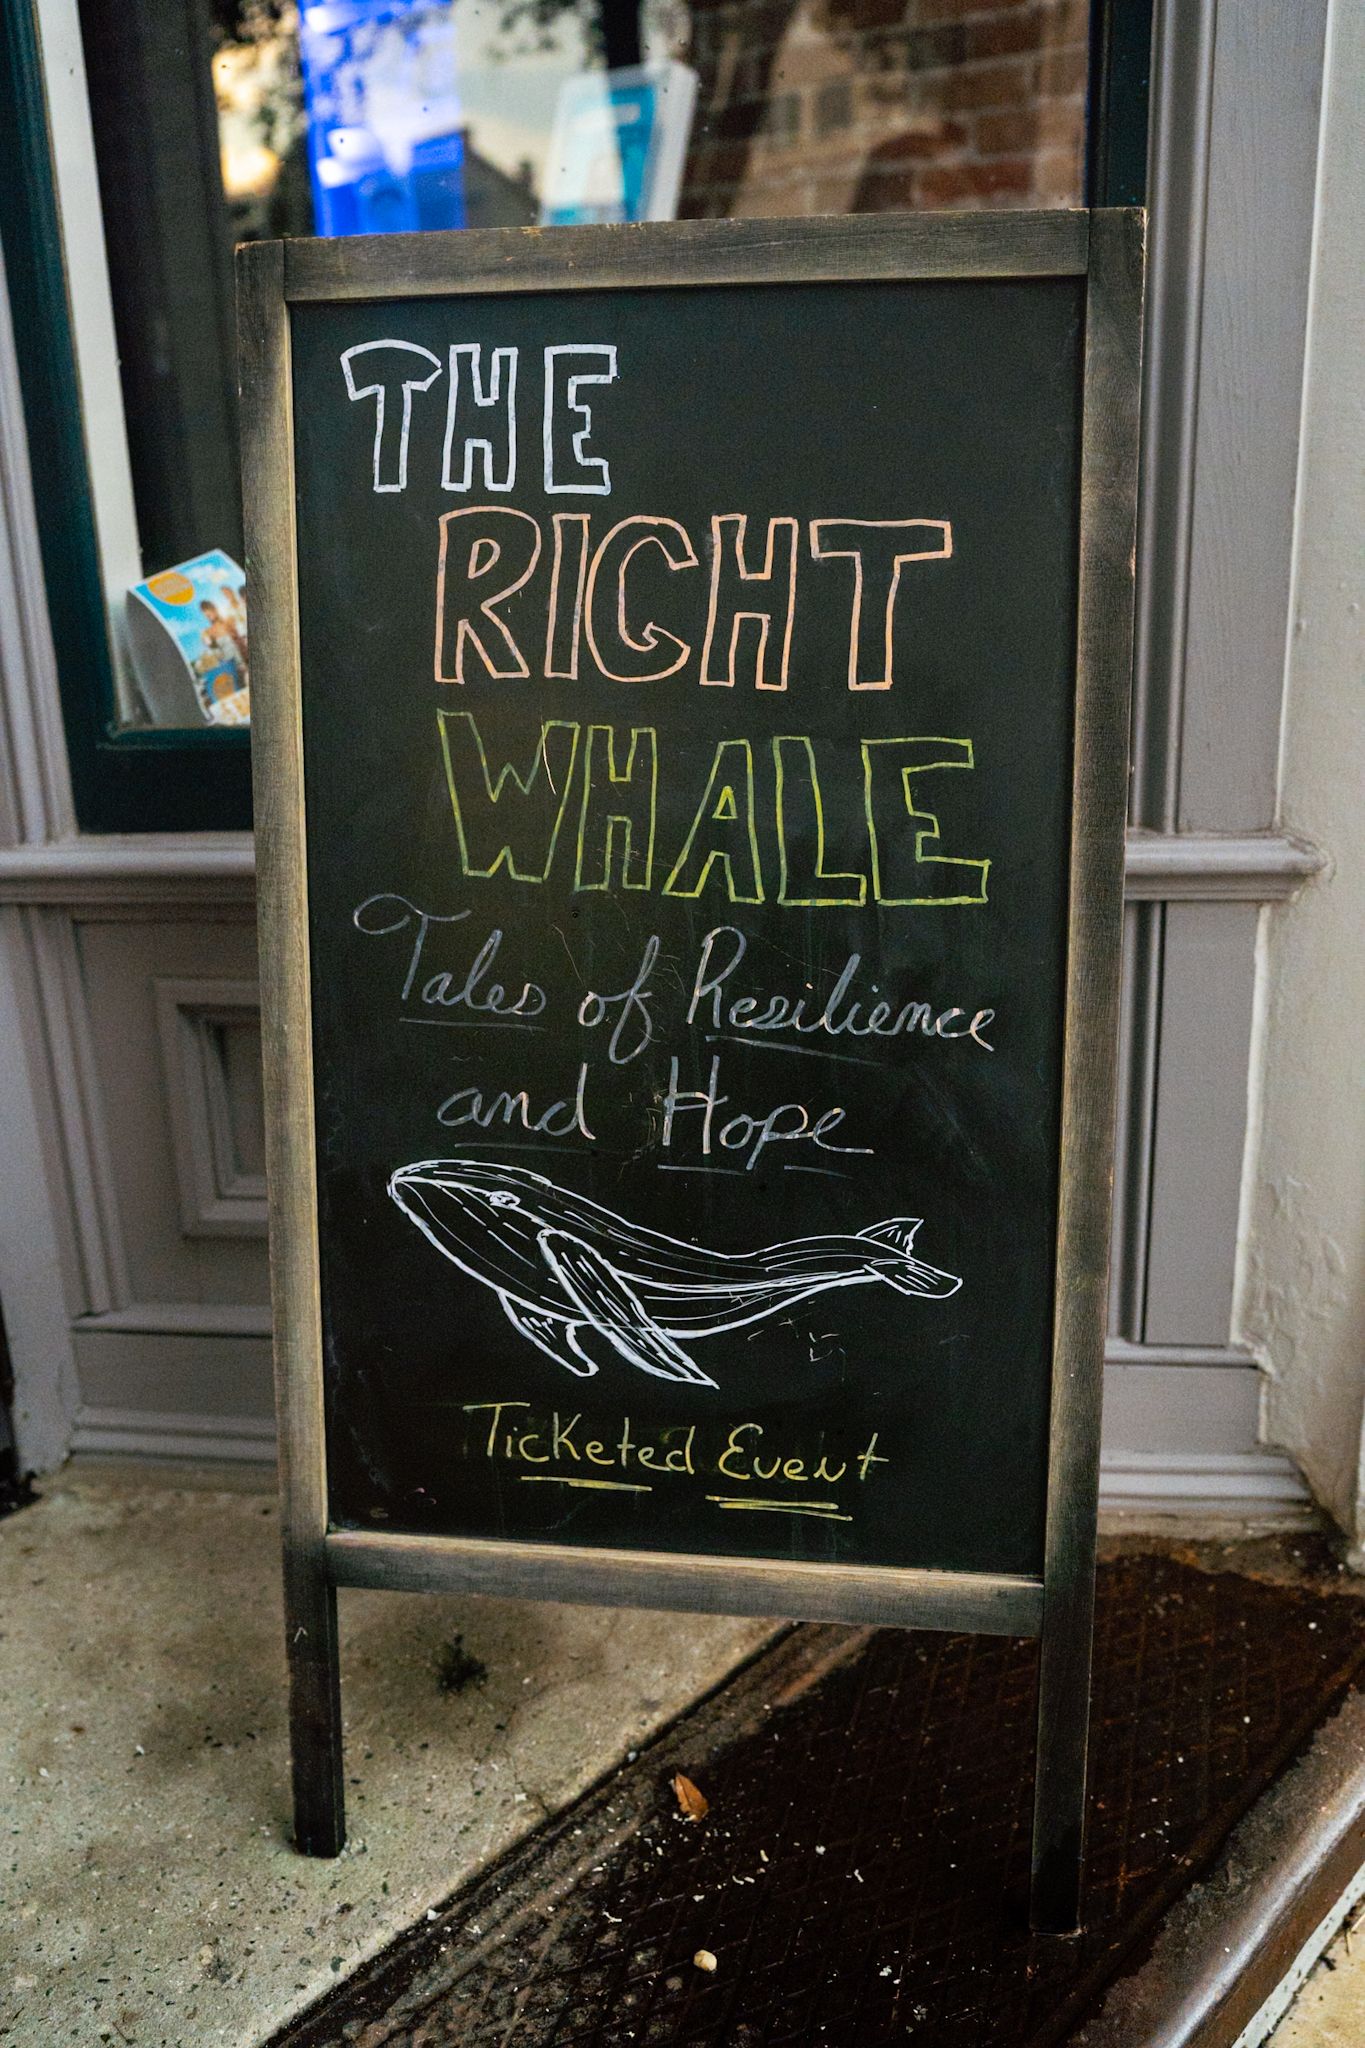 THE
RIGHT
WHALE
Tales of Resilience
and Hope
Ticketed Event